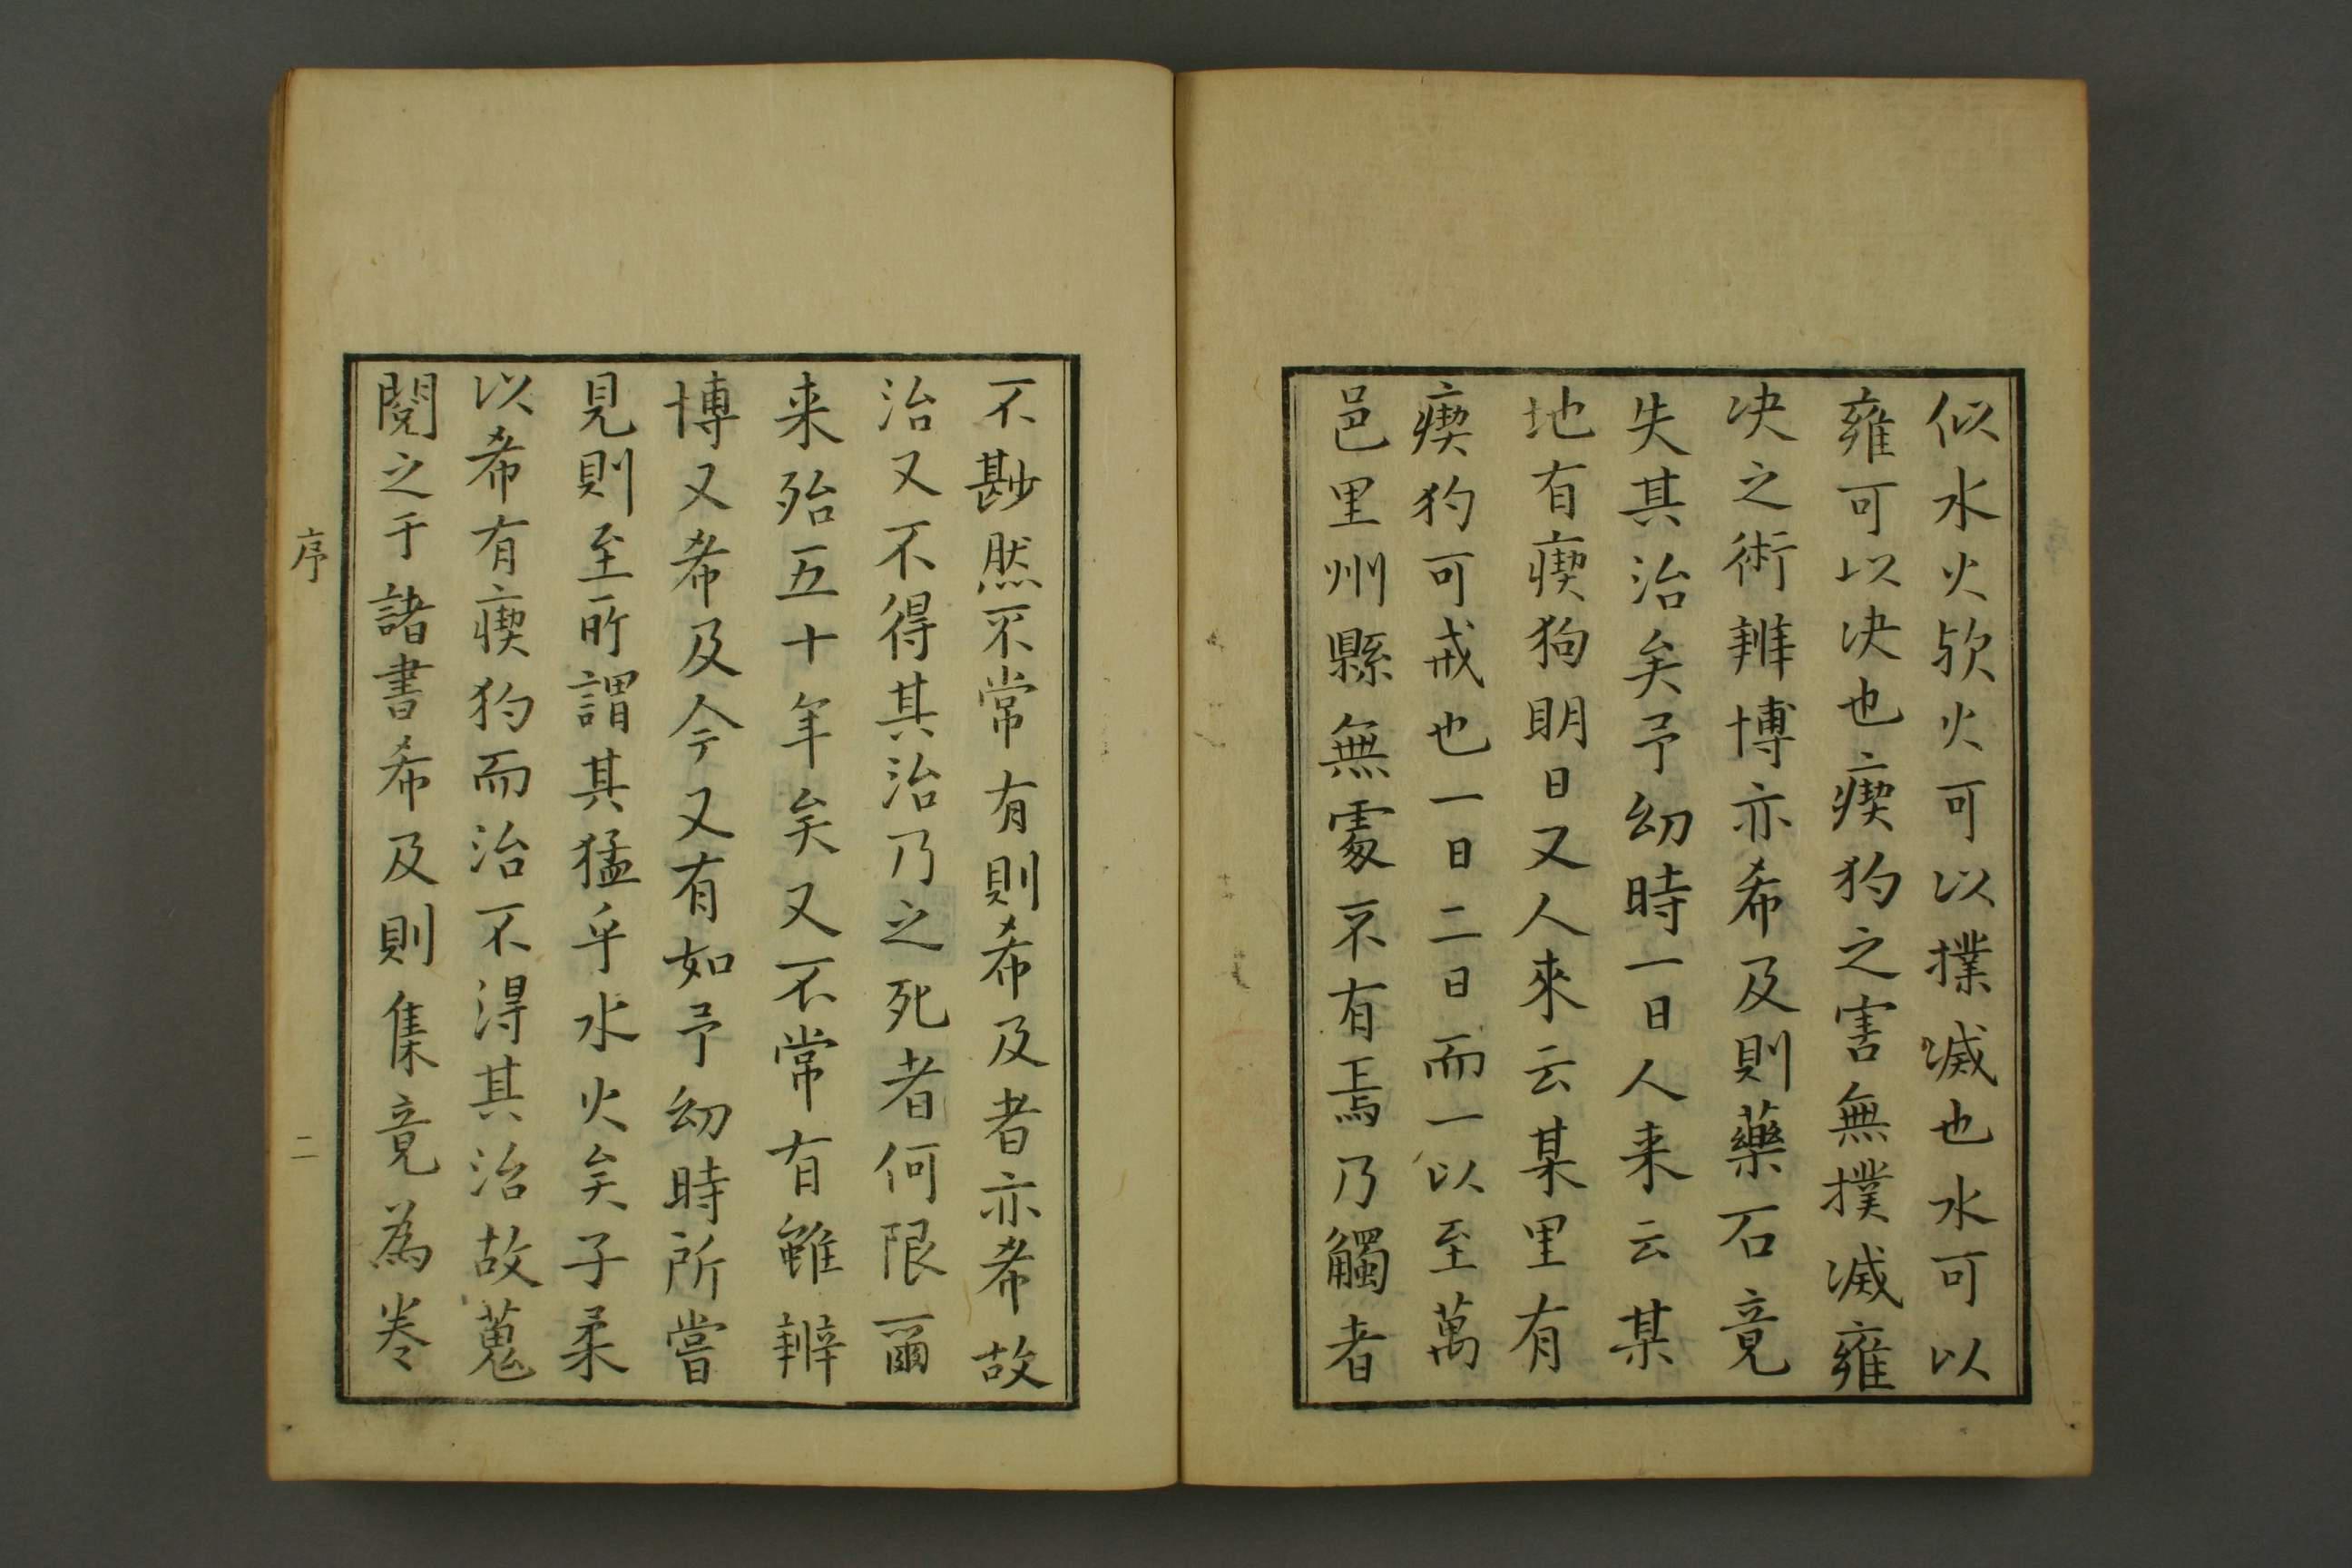 似水火欤火可以撲滅也水可以
雍可以决也瘈狗之害無撲滅雍
决之術辨博亦希及則藥石竟
失其治矣予幼時一日人来云某
地有瘈狗明日又人來云某里有
瘈狗可戒也一日二日而一以至萬
邑里州縣無處不有焉乃觸者
不尠然不常有則希及者亦希故
治又不得其治乃之死者何限爾
来殆五十年矣又不常有雖辨
博又希及今又有如予幼時所嘗
見則至所謂其猛乎水火矣子柔
以希有瘈狗而治不得其治故蒐
閱之于諸書希及則集竟為卷
序
二